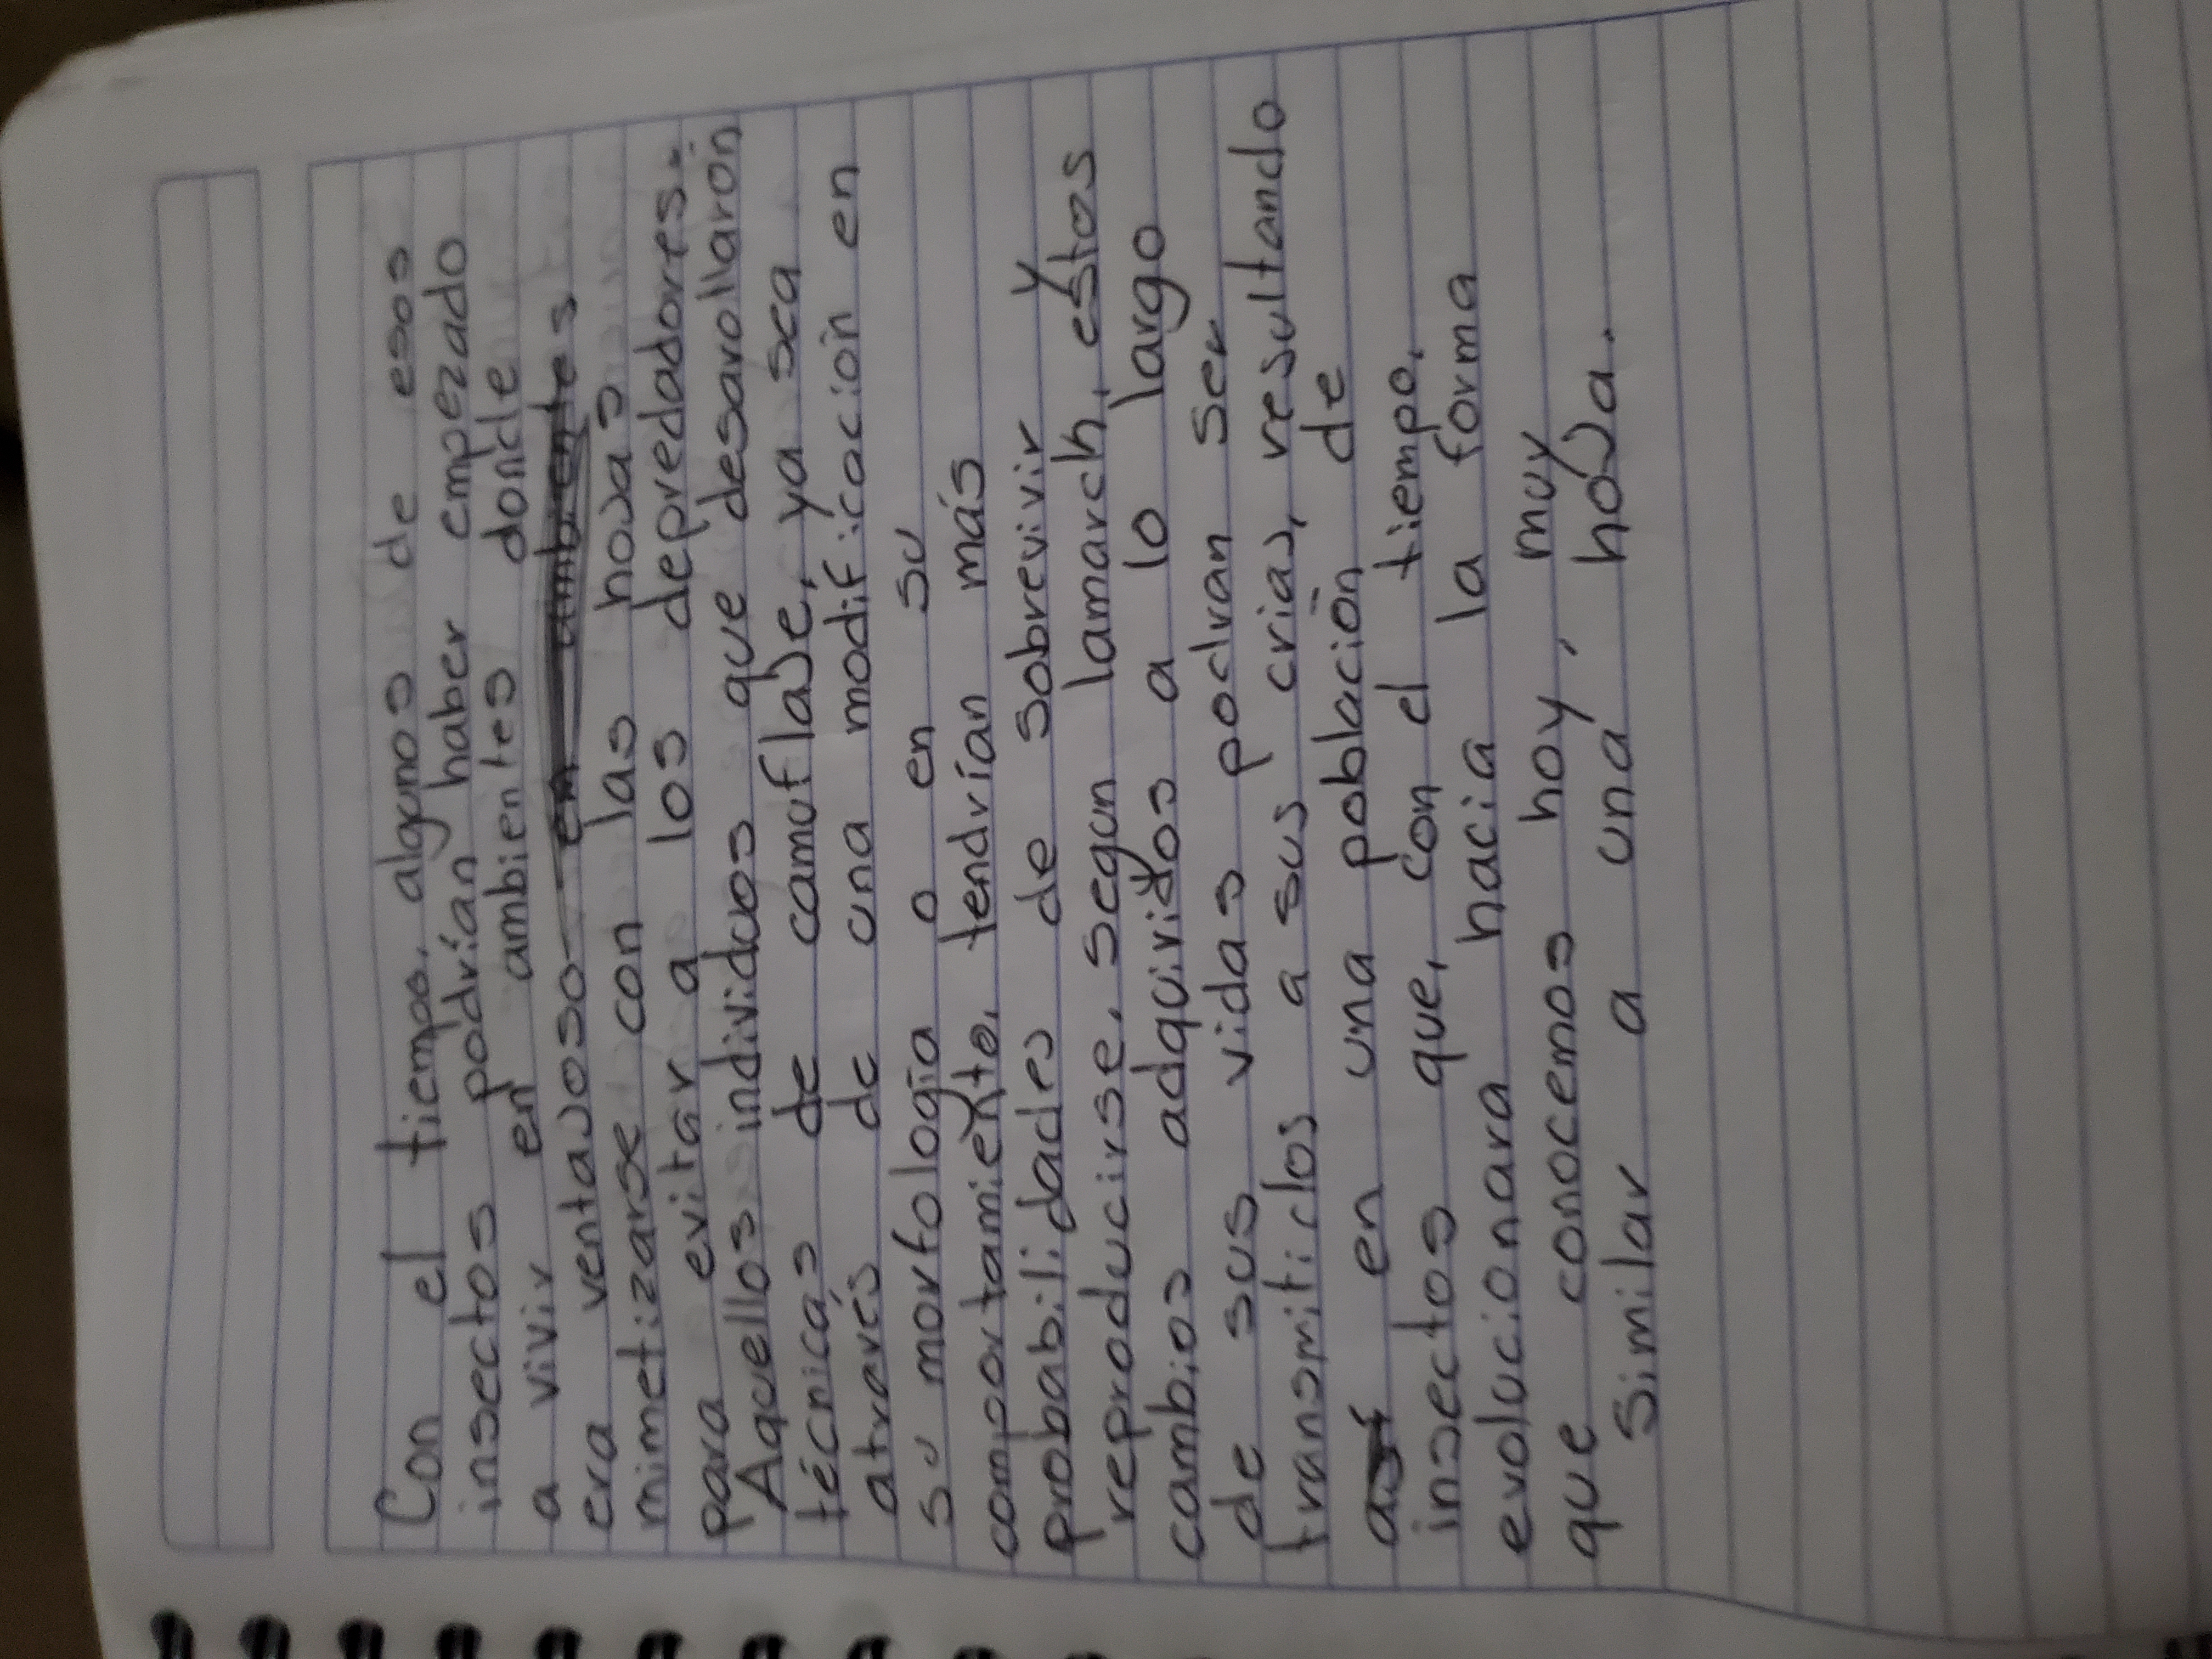 Con el tiempo, algunos de esos
insectos podrían haber empezado
a vivir en ambientes donde
era ventajoso en ambientes
mimetizarse con las hojas
para evitar a los depredadores.
Aquellos individuos que desarollarón
técnicas de camuflaje, ya sea
atravès de una modificación en
su morfología o en su
comportamiento, tendrían más
probabilidades de sobrevivir y
reproducirse, segun lamarch, estos
cambios adquiridos a lo largo
de sus vidas podran ser
transmitidos a sus crias, resultando
en una población de
insectos que, con el tiempo,
evolucionara hacia la forma
que conocemos hoy, muy
similar a una hoja.